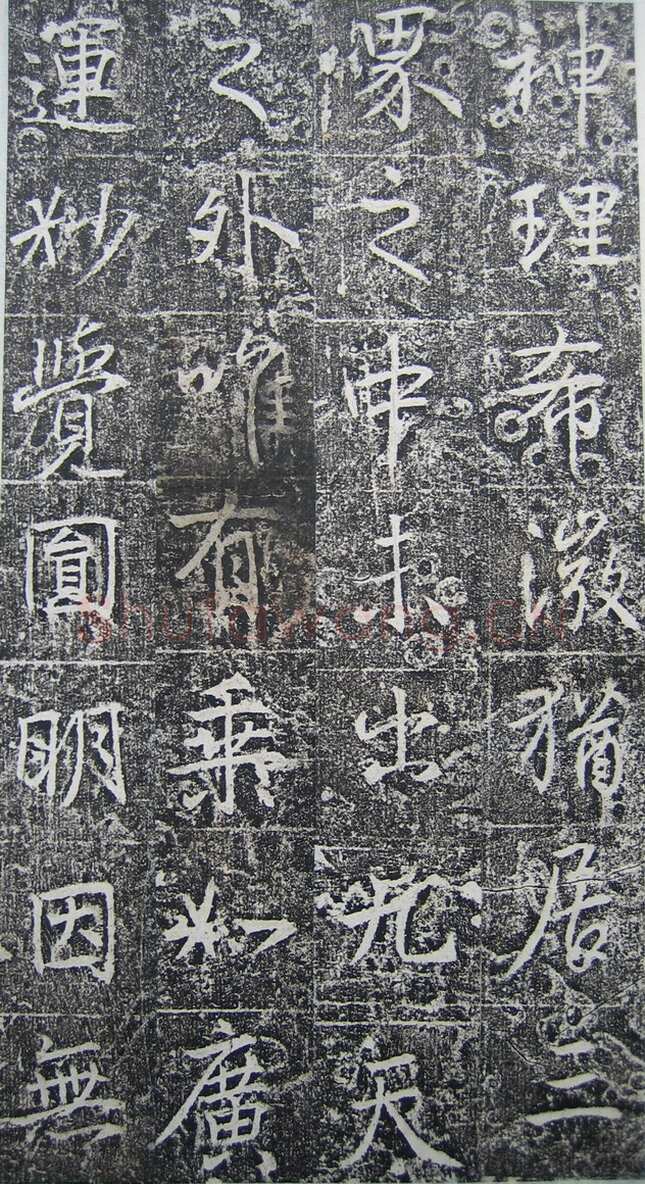 神理希微猶居二
象之中未出九天
之外唯有乘如廣
運妙覺圓明因無
Shufawang.CN